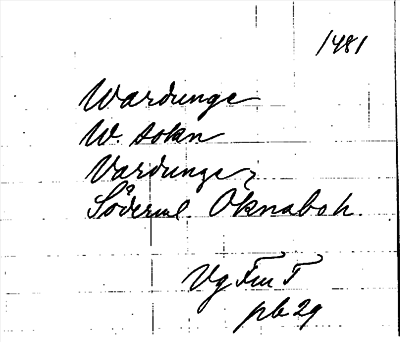 1481
Wardunge
W. sokn
Vardunge,
Söderml. Oknaboh.
Vg Fm T
pb 29